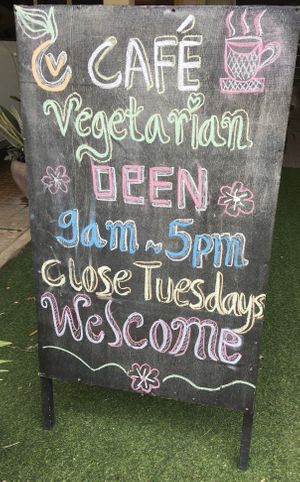 CAFÉ
Vegetarian
OPEN
9am ~ 5pm
Close Tuesdays
Welcome